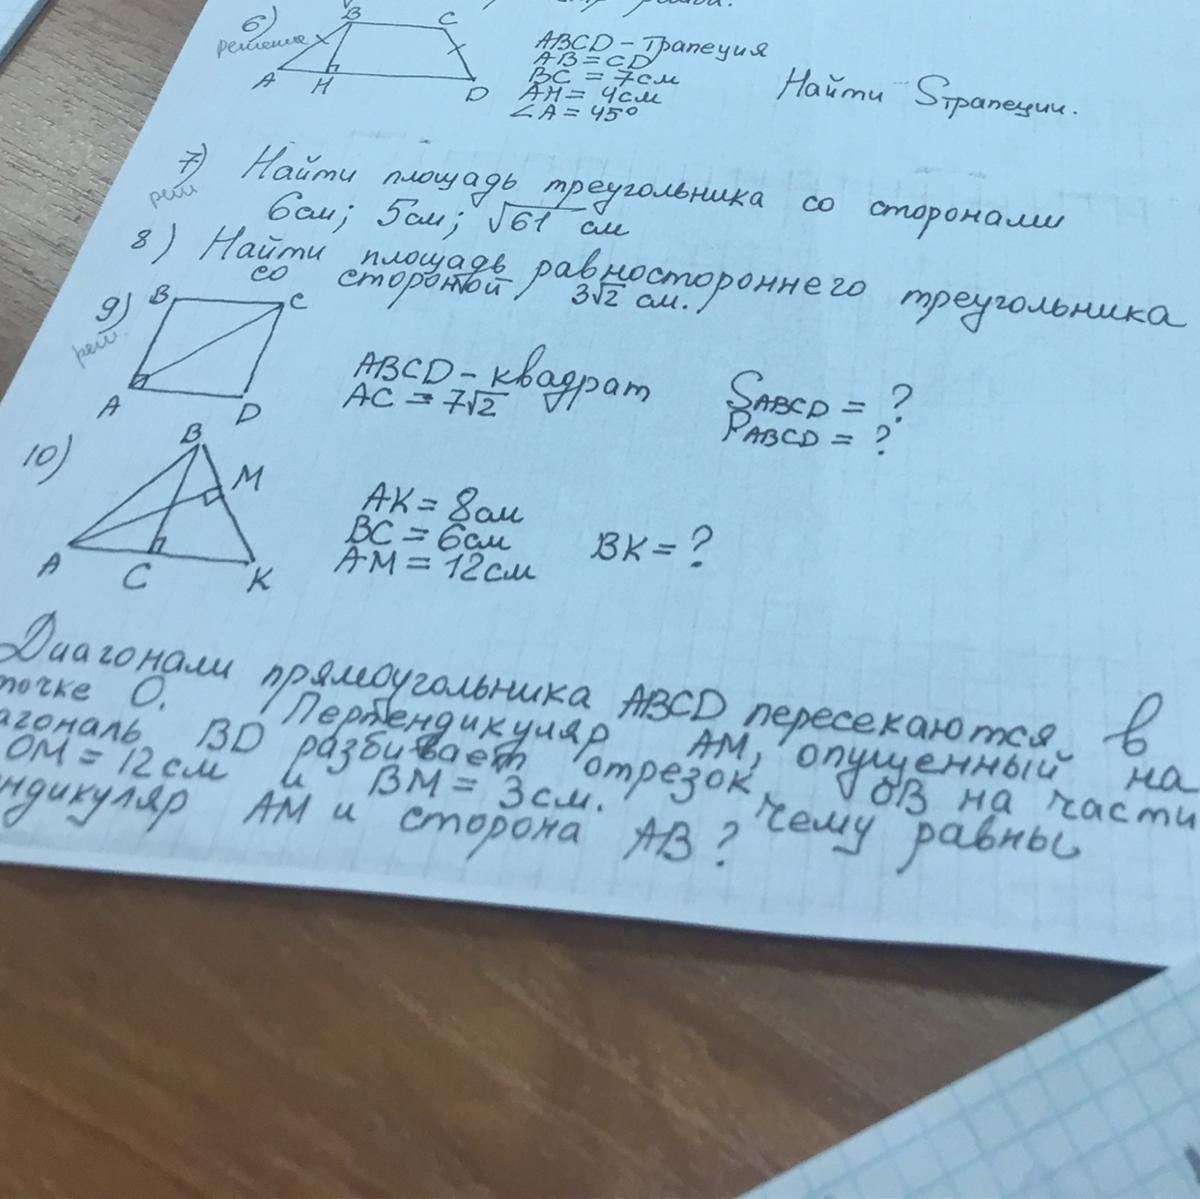 6)
решение
B C
A H D
ABCD - Трапеция
AB = CD
BC = 7см
AH = 4см
∠A = 45°
Найти Sтрапеции.
7) Найти площадь треугольника со сторонами
реш
6см; 5см; √61 см
8) Найти площадь равностороннего треугольника
со стороной 3√2 см.
9)
реш.
B C
A D
ABCD - квадрат
AC = 7√2
SABCD = ?
PABCD = ?
10)
B
M
A C K
AK = 8см
BC = 6см
AM = 12см
BK = ?
Диагонали прямоугольника ABCD пересекаются в
точке O. Перпендикуляр AM, опущенный на
агональ BD разбивает отрезок OB на части
OM = 12см и BM = 3см. Чему равны
ндикуляр AM и сторона AB?